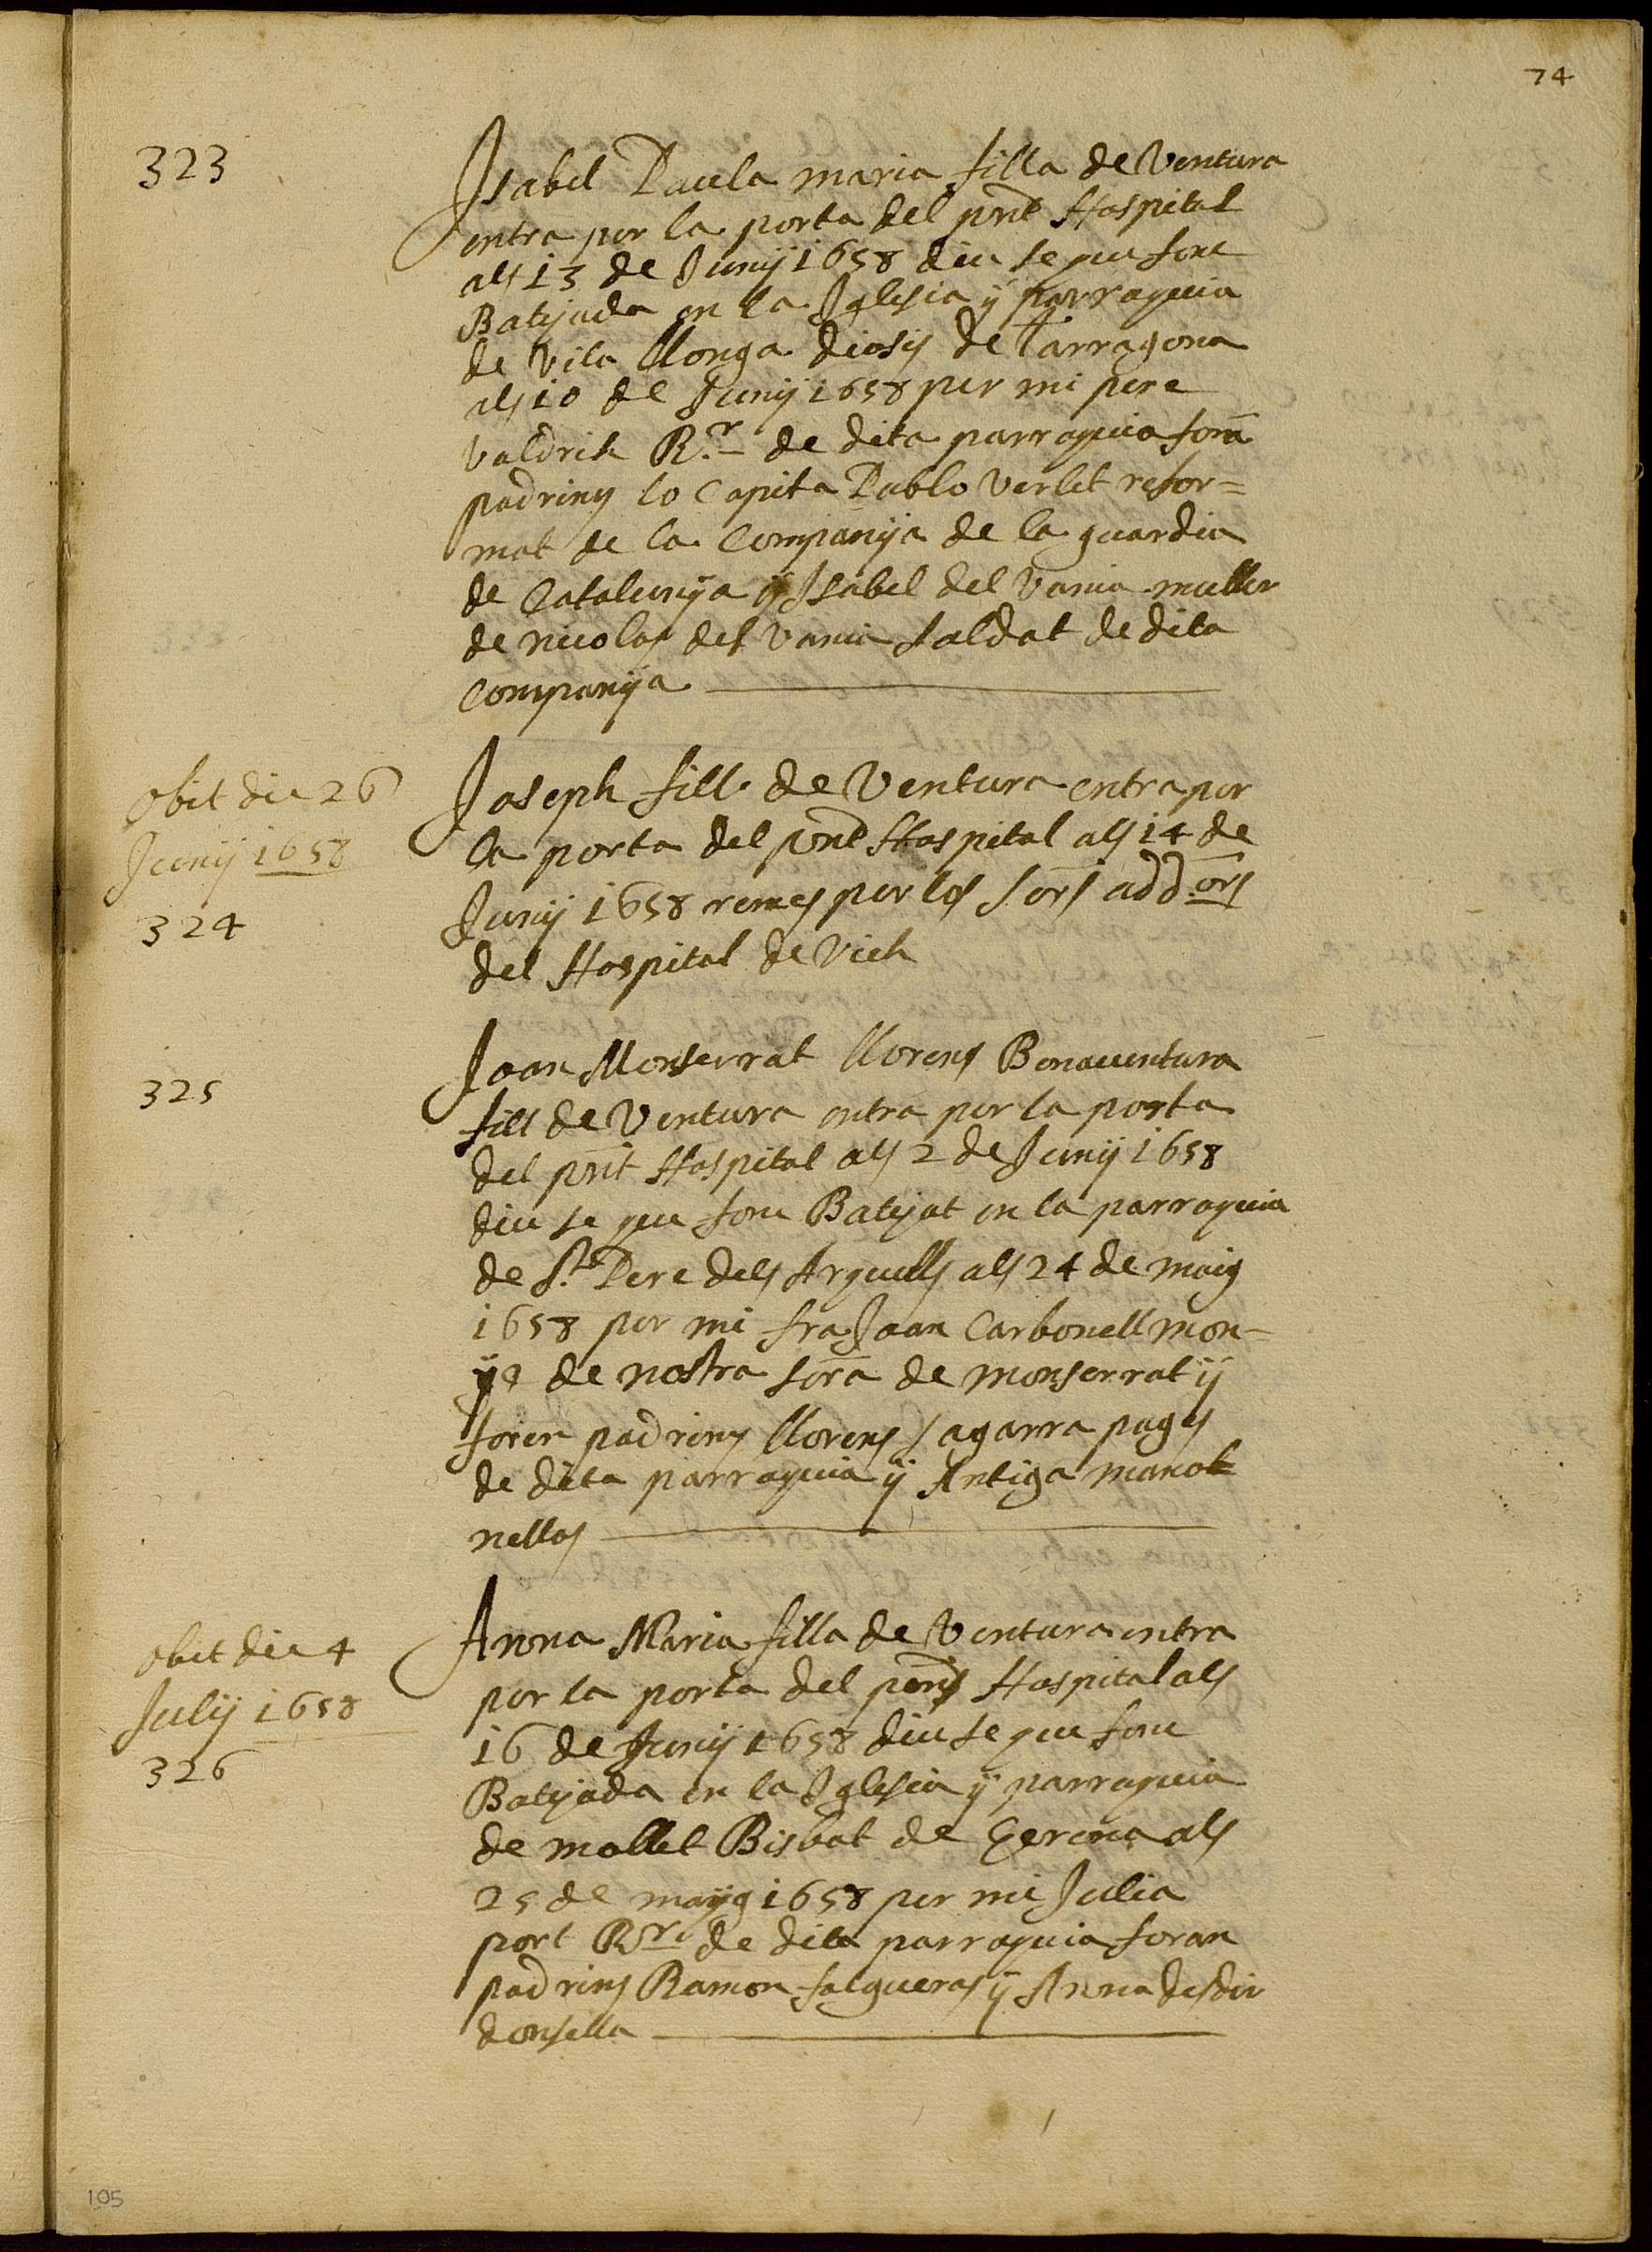 74
323
Isabel Paula maria filla de Ventura
entra per la porta del pnt Hospital
als 13 de Junÿ 1658 diu se que fonc
Batejada en la Iglesia ÿ parroquia
de vila llonga diosis de Tarragona
als 10 de Junÿ 1658 per mi pere
valdrich R.r de dita parroquia forã
padrins lo Capita Pablo Verlet refor=
mat de la Companÿa de la guardia
de Catalunÿa ÿ Isabel del Vania muller
de nicolas del vania saldat de dita
Companÿa
obit die 26
Junÿ 1658
324
Joseph fill de Ventura entra per
la porta del pnt Hospital als 14 de
Junÿ 1658 remes per los Sors add.ors
del Hospital de Vich
325
Joan Monserrat llorens Bonaventura
fill de Ventura entra per la porta
del pnt Hospital als 2 de Junÿ 1658
diu se que fonc Batejat en la parroquia
de St. Pere dels Arquells als 24 de maig
1658 per mi fra Joan Carbonell mon=
ge de nostra sora de monserrat ÿ
foren padrins llorens sagarra pages
de dita parroquia ÿ Antiga manok
nellas
obit die 4
Julÿ 1658
326
Anna Maria filla de Ventura entra
per la porta del pnt Hospital als
16 de Junÿ 1658 diu se que fonc
Batejada en la Iglesia ÿ parroquia
de mollet Bisbat de Gerona als
25 de maÿg 1658 per mi Julia
port R.r de dita parroquia foran
padrins Ramon falgueras ÿ Anna desdir
donsella
105